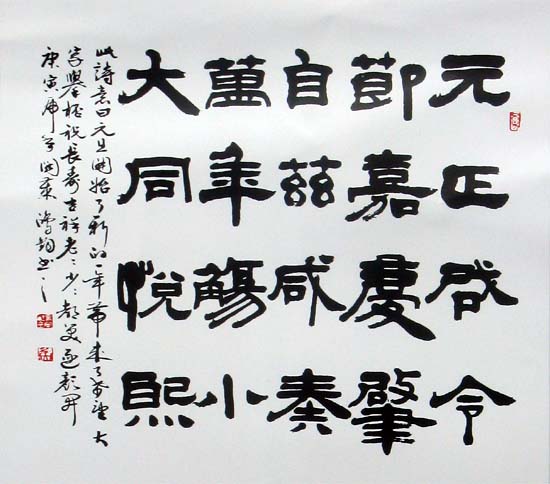 元正启令
節嘉慶肇
自茲咸奏
萬年觴小
大同悅熙
此詩意曰元旦開始了新的一年帶來了希望大
家舉杯祝長壽吉祥老〻少〻都笑逐顏開
庚寅虎年 書